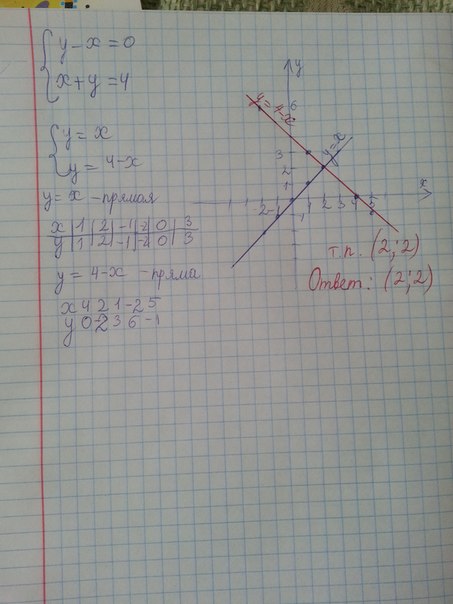 { y - x = 0
x + y = 4
{ y = x
y = 4-x
y = x - прямая
x | 1 | 2 | -1 | -2 | 0 | 3
y | 1 | 2 | -1 | -2 | 0 | 3
y = 4-x - пряма
x 4 2 1 -2 5
y 0 2 3 6 -1
y
6
y = 4-x
y = x
3
2
1
x
2 -1 1 2 3 4 5
т.п. (2;2)
Ответ: (2;2)